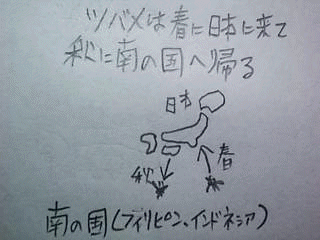 ツバメは春に日本に来て
秋に南の国へ帰る
日本
秋
春
南の国(フィリピン、インドネシア)